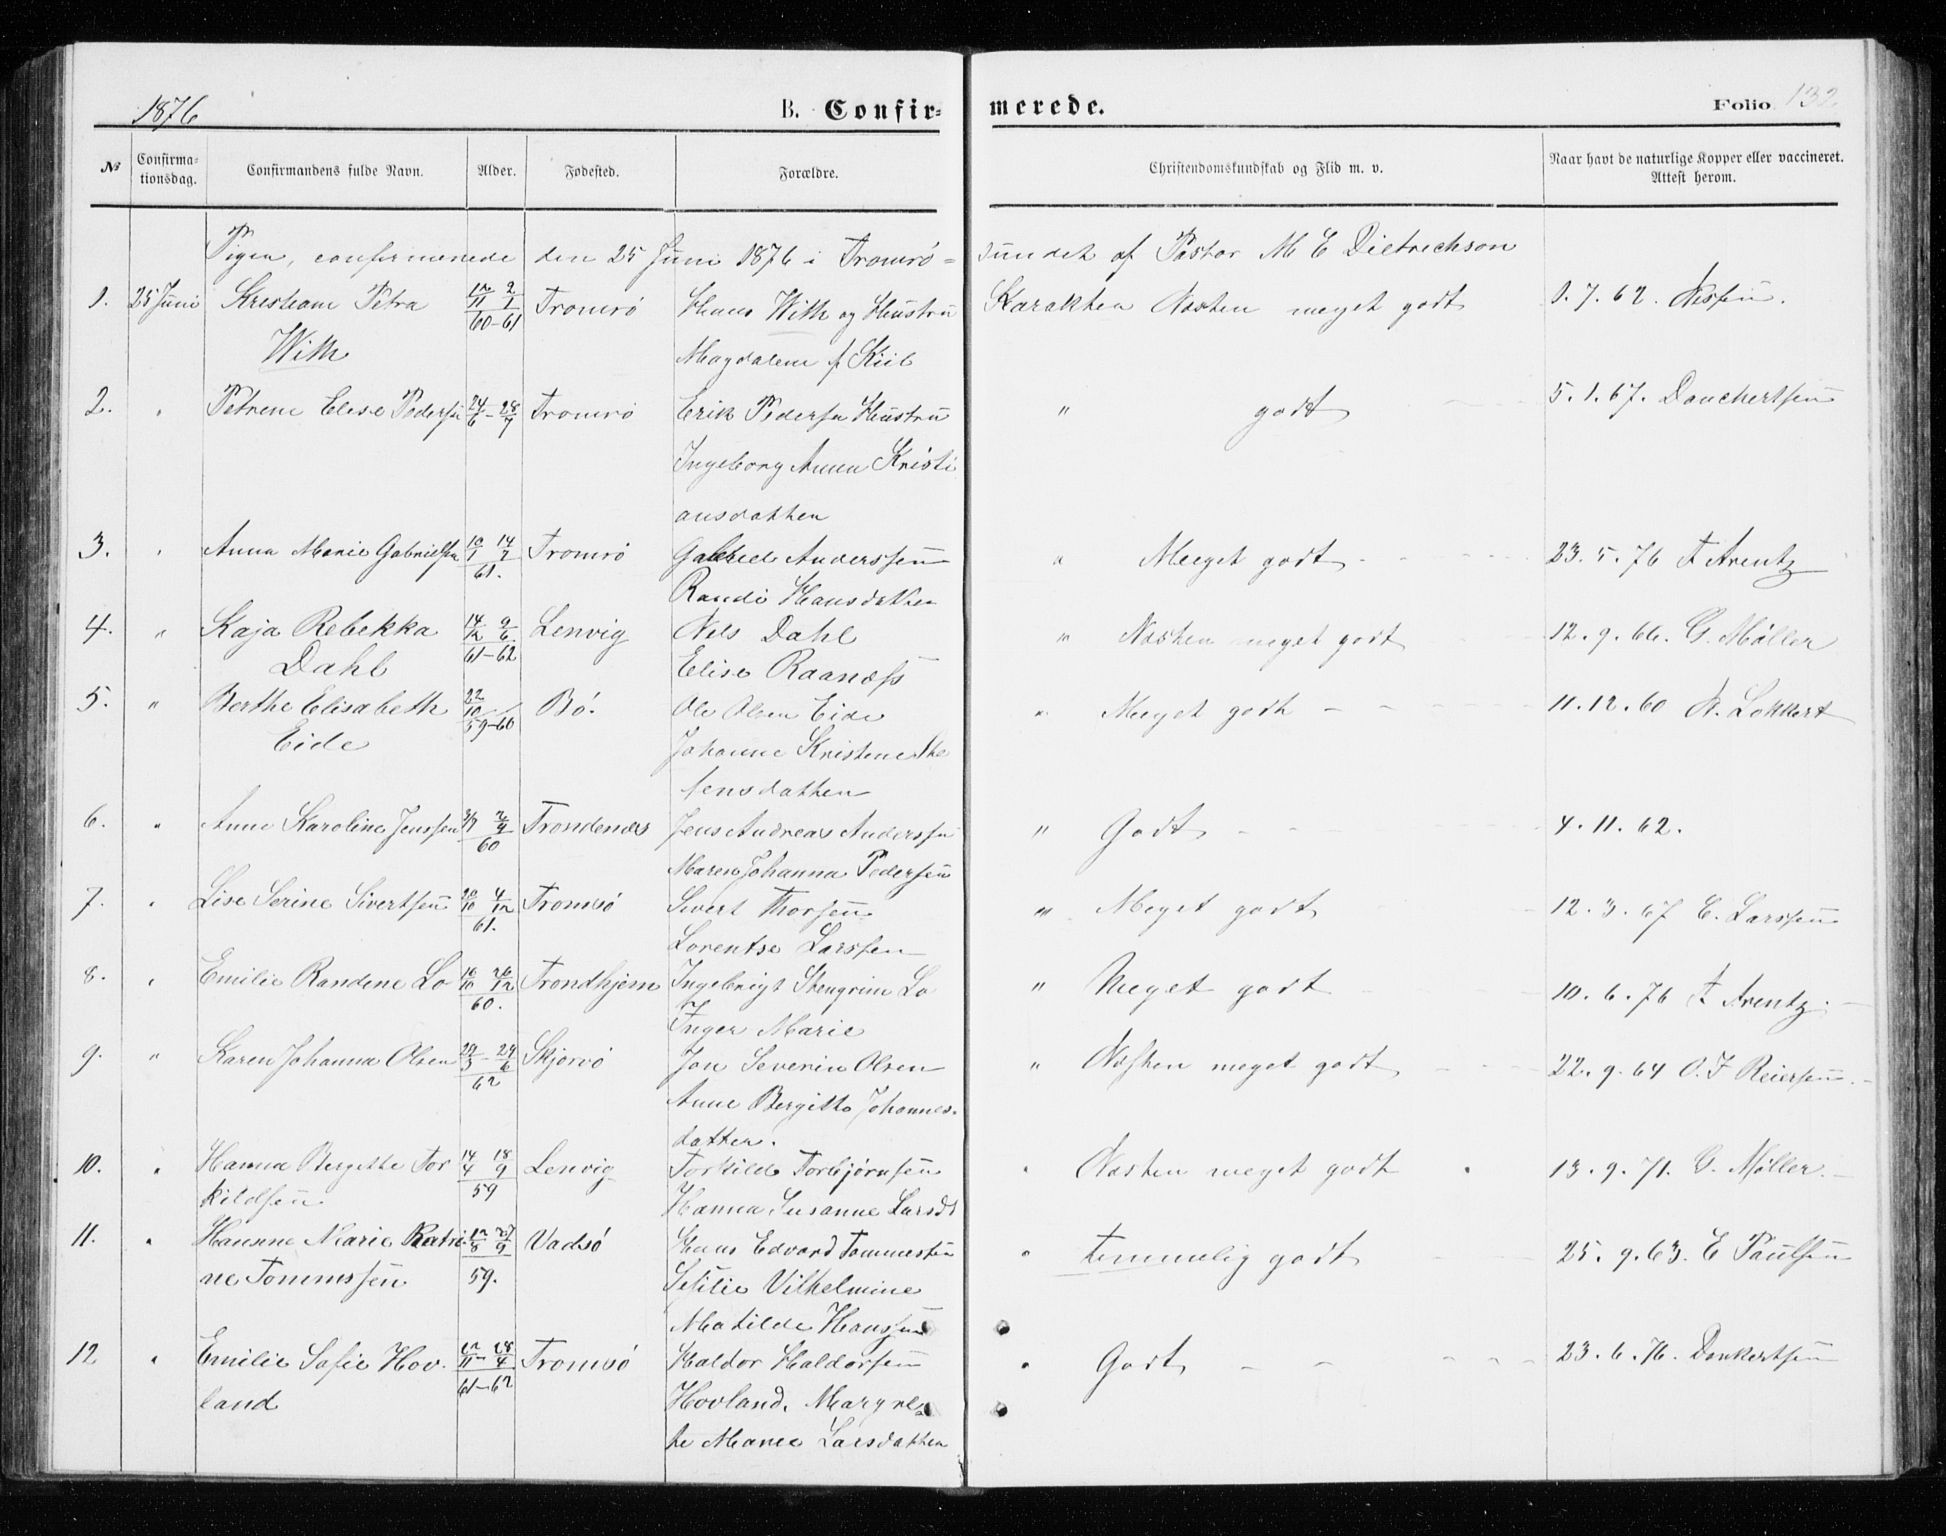 1876 B. Confir= merede. Folio 132
№ Confirma= tionsdag. Confirmandens fulde Navn. Alder. Fødested. Forældre. Christendomskundskab og Flid m. v. Naar havt de naturlige Kopper eller vaccineret. Attest herom.
Piger, confirmerede den 25 Juni 1876 i Tromsø= sundet af Pastor M E Dietrichson
1. 25 Juni Petra 12/11 2/1 Tromsø Hans With og Hustru Karakter Næsten meget godt 1.7.62.
With 60-61 Magdalene f Kiil
2. " Petrine Elise Pedersen 24/6 - 28/7 Tromsø Erik Pedersen Hustru " godt 5.1.67. Danchertsen
Ingeborg Anna Kristi
ansdatter
3. " Anna Marie Gabrielsen 10/1 14/7 Tromsø Gabriel Anderssen " Meget godt 23.5.76 F Arentz
61. Randi Hansdatter
4. " Kaja Rebekka 14/12 9/6 Lenvig Nils Dahl " Næsten meget godt 12.9.66. G. Møller
Dahl 61-62 Elise Raanæss
5. " Berthe Elisabeth 22/10 Bø. Ole Olsen Eide " Meget godt 11.12.60 N. Lokkert
Eide 59-60 Johanne Kristene
datter
6. " Anne Karoline Jenssen 60 Trondenæs Jens Andreas Anderssen " Godt 4.11.62.
Maren Johanna Pedersen
7. " Lise Serine Sivertsen 20/10 4/12 Tromsø Sivert Thorsen " Meget godt 12.3.67 E. Larssen
61. Lorentse Larssen
8. " Emilie Randine Lo 16/10 26/12 Trondhjem Ingebrigt Stengrim Lo " Meget godt 10.6.76 F Arentz.
60. Inger Marie
9. " Karen Johanna Olsen 29/3 - 29/6 Skjervø Jon Severin Olsen " Næsten meget godt 22.9.64 O.F Reiersen
62 Anne Bergitte Johannes-
datter.
10. " Hanna Bergitte Tor 14/4 18/9 Lenvig Torkild Torbjørnsen " Næsten meget godt 13.9.71. G. Møller
kildsen 59 Hanna Susanne Larsdt
11. " Hansine Marie Katri 12/8 27/9 Vadsø Hans Edvard Tommesen " temmelig godt 25.9.63. E Paulsen
ne Tommssen 59. Vilhelmine
Matilde Hanssen
12 " Emilie Sofie Hov- 12/11 - 28/4 Tromsø Haldor Haldorsen " Godt 23.6.76. Donkertsen
land 61-62 Hovland, Margre
te Marie Larsdatter